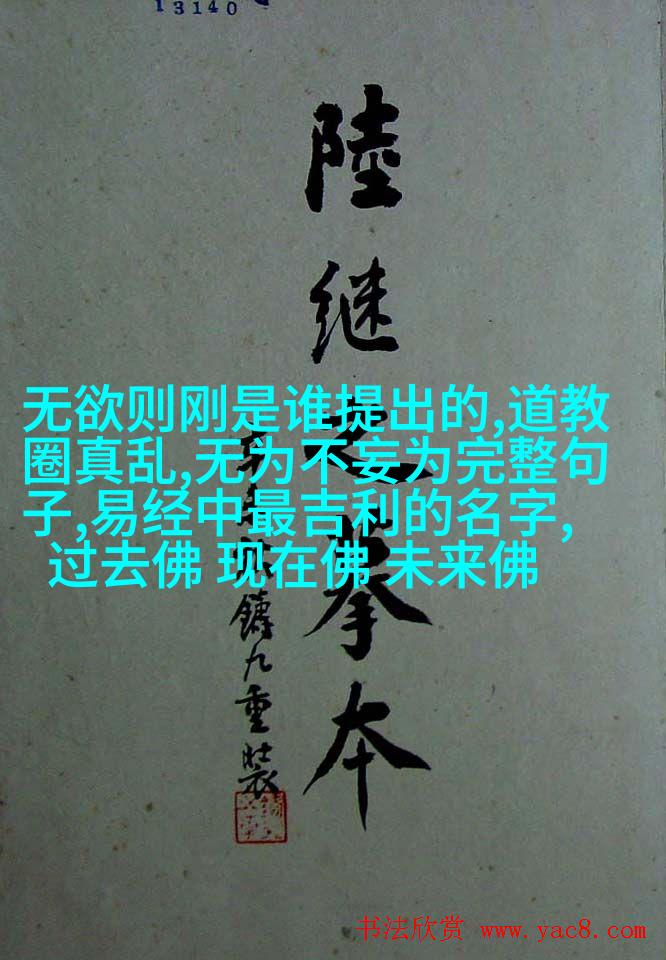 13140
陸继之摹本
無欲则刚是谁提出的,道教
圈真乱,无为不妄为完整句
子,易经中最吉利的名字,
过去佛 现在佛 未来佛
鑄九重裝
书法欣赏 www.yac8.com